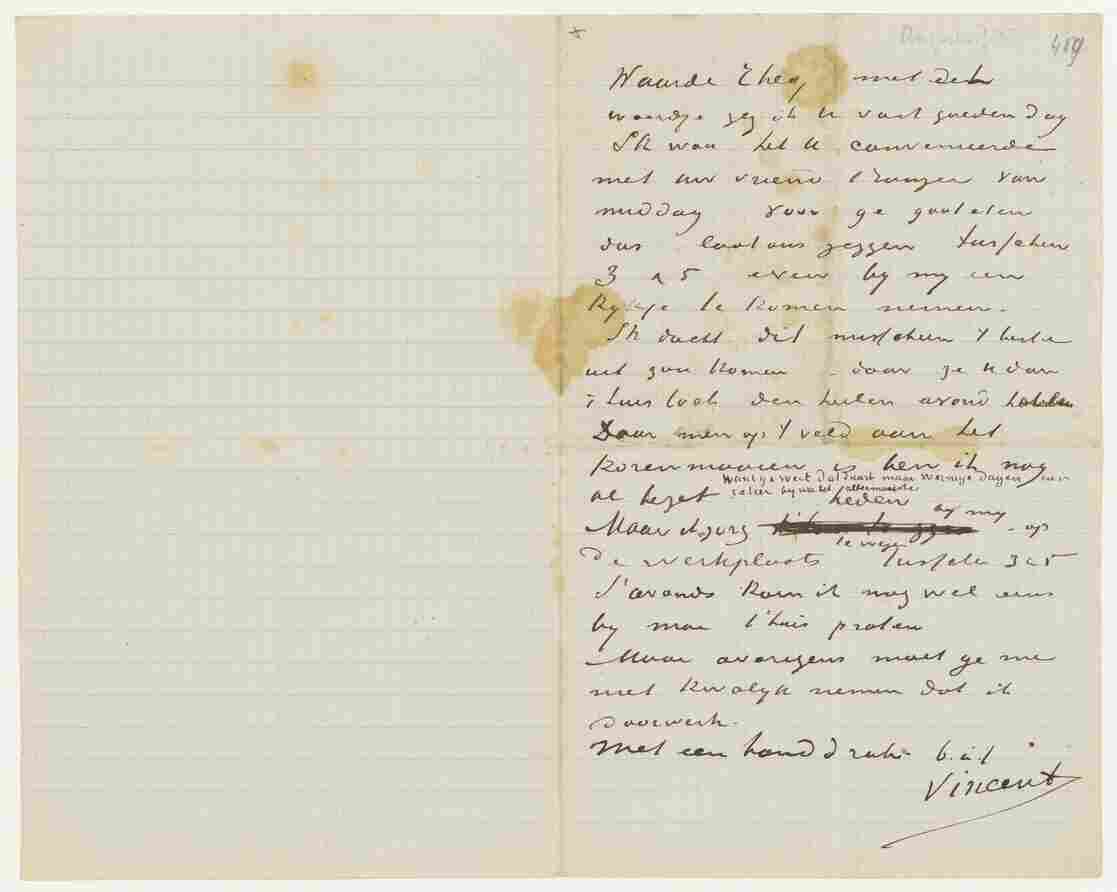 459
Waarde Theo, met dit
woordje zeg ik U vast goeden dag
Ik wou het U convenieerde
met uw vriend Bonger van
middag voor ge gaat eten
dus laat ons zeggen tusschen
3 a 5 even by my een
kykje te komen nemen.
Ik dacht dit misschien 't beste
uit zou komen - daar ge U dan
thuis toch den heelen avond
Daar men op 't veld aan het
korenmaaien is ben ik nog
want ge weet dat duurt maar weinige dagen en
al bezet heden
Maar ik zorg by my op
te wezen
de werkplaats tusschen 3 a 5
s'avonds kom ik nog wel eens
by moe t'huis praten
Maar overigens moet ge me
niet kwalyk nemen dat ik
doorwerk.
Met een handdruk b.à.t.
Vincent